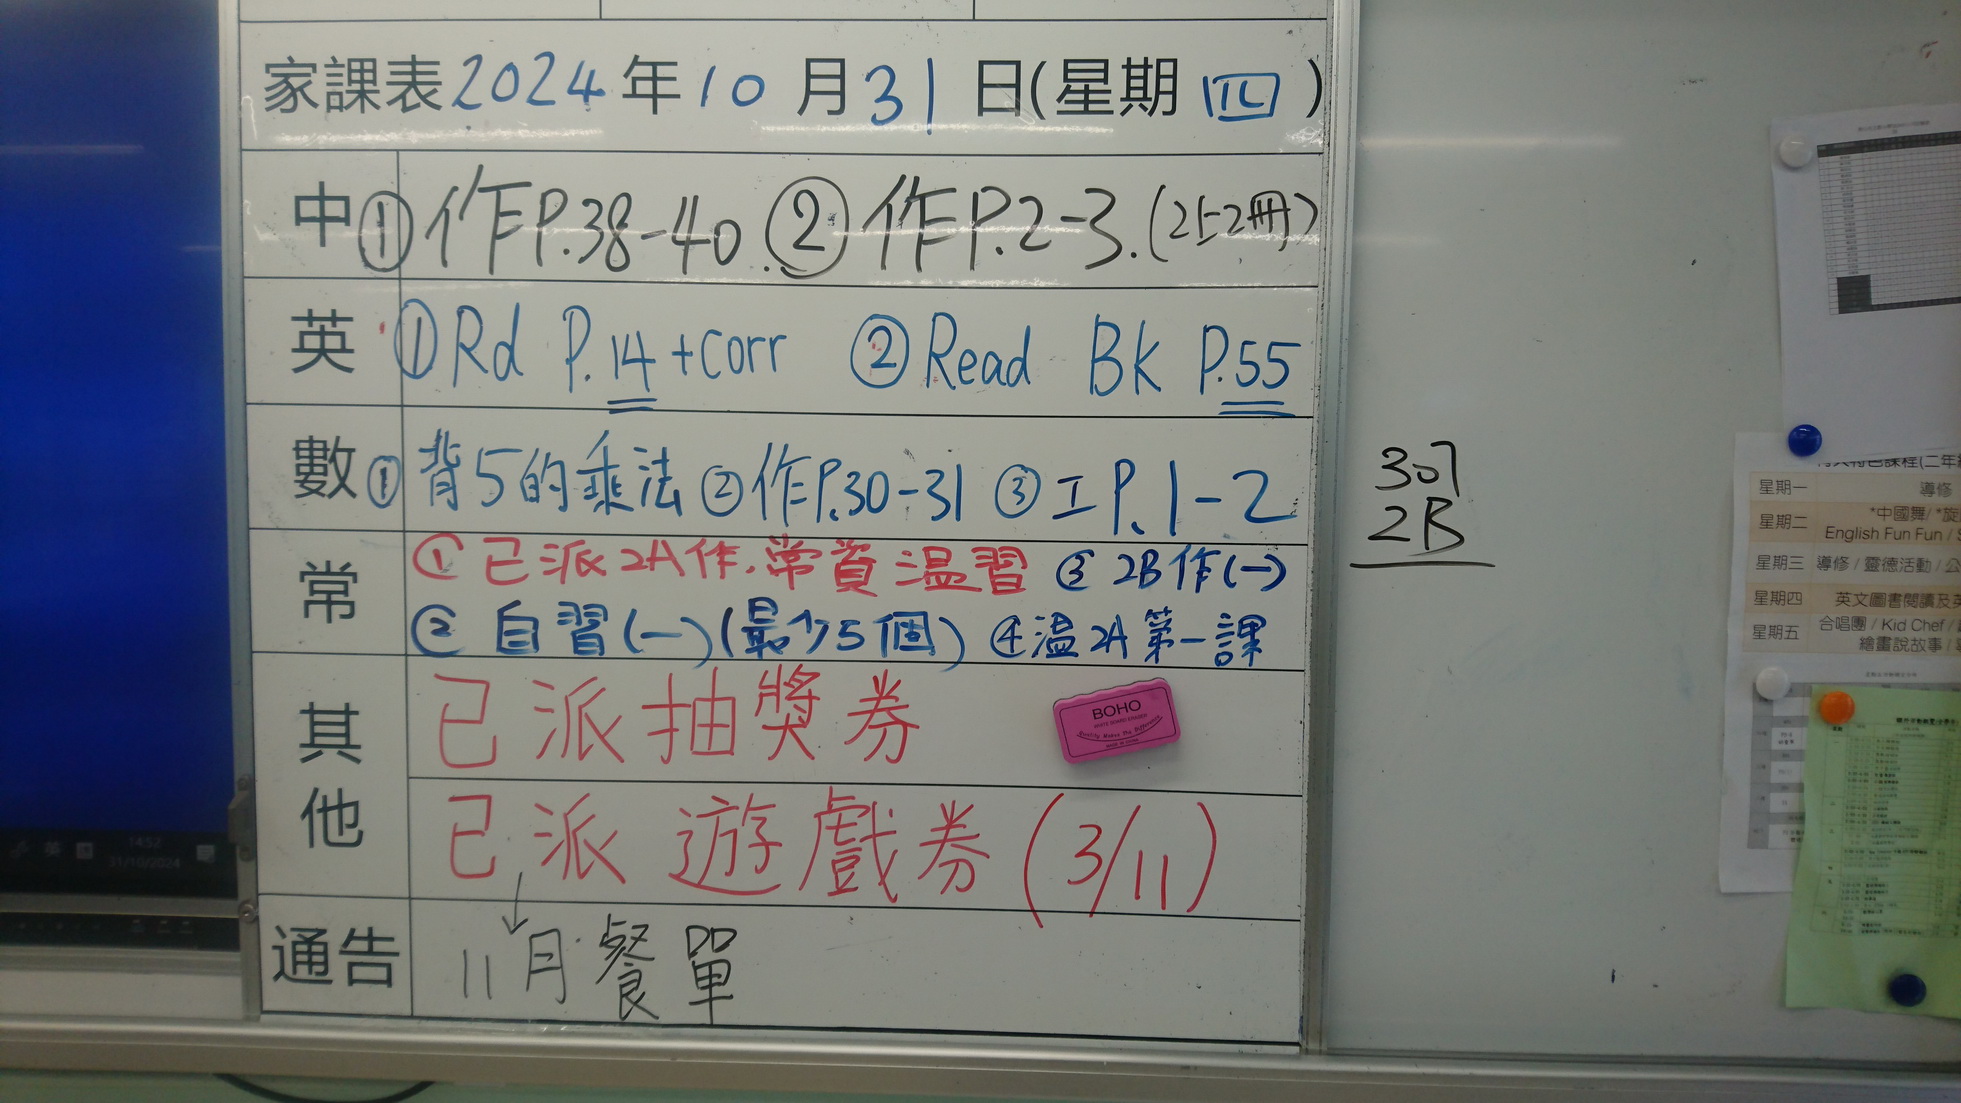 家課表2024年10月31日(星期四)
中①作P.38-40.②作P.2-3.(2上2冊)
英①Rd P.14+corr ②Read BK P.55
數①背5的乘法②作P.30-31③工P.1-2
常①已派2A作.常資溫習③2B作(一)
②自習(一)(最少5個)④溫2A第一課
其他
已派抽獎券
已派遊戲券(3/11)
通告 11月餐單
BOHO
WHITE BOARD ERASER
Quality Makes The Difference
MADE IN CHINA
307
2B
星期一 導修
星期二 *中國舞/ *旋
English Fun Fun /
星期三 導修 / 靈德活動 / 公
星期四 英文圖書閱讀及英
星期五 合唱團 / Kid Chef /
繪畫說故事 /
14:52
31/10/2024
英